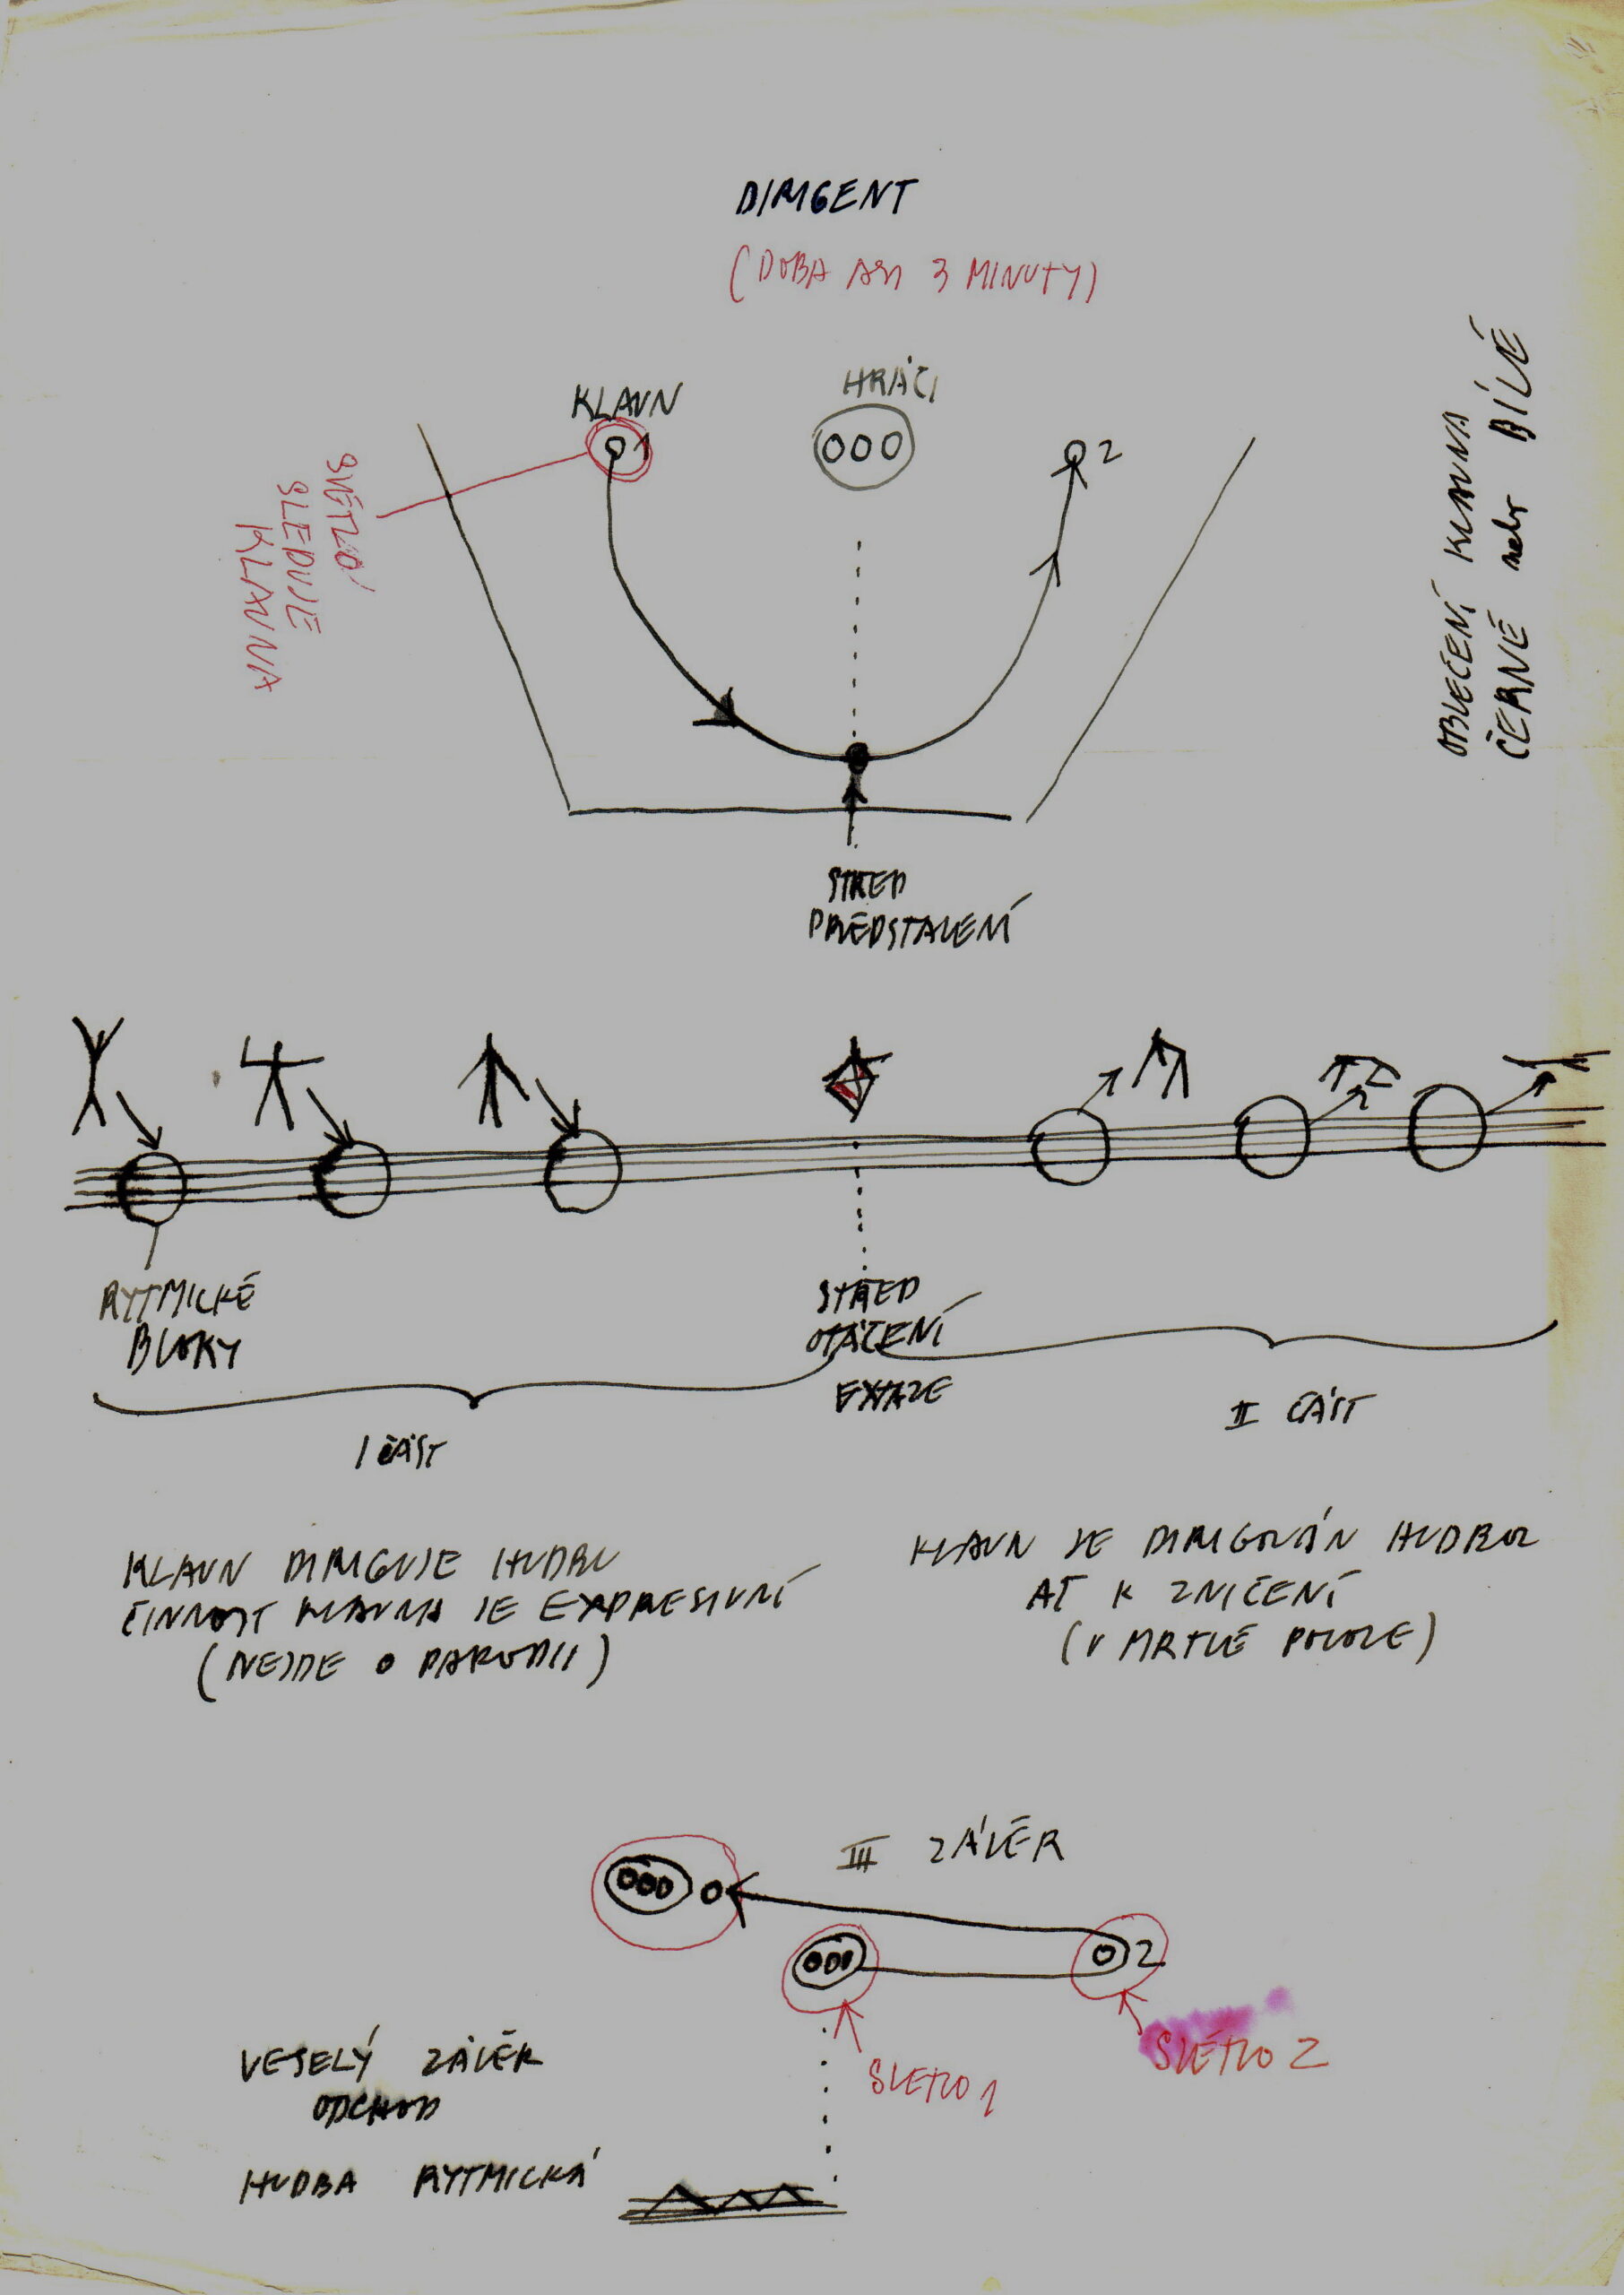 DIRIGENT
(DOBA ASI 3 MINUTY)
KLAUN
HRÁČI
1
OOO
2
SVĚTLO
SLEDUJE
KLAUNA
OBLEČENÍ KLAUNA
ČERNÉ nebo BÍLÉ
STŘED
PŘEDSTAVENÍ
RYTMICKÉ
BLOKY
STŘED
OTÁČENÍ
EXTAZE
I ČÁST
II ČÁST
KLAUN DIRIGUJE HUDBU
ČINNOST KLAUNA JE EXPRESIVNÍ
(NEJDE O PARODII)
KLAUN JE DIRIGOVÁN HUDBOU
AŽ K ZNIČENÍ
(V MRTVÉ POLOZE)
III ZÁVĚR
2
SVĚTLO 1
SVĚTLO 2
VESELÝ ZÁVĚR
ODCHOD
HUDBA RYTMICKÁ